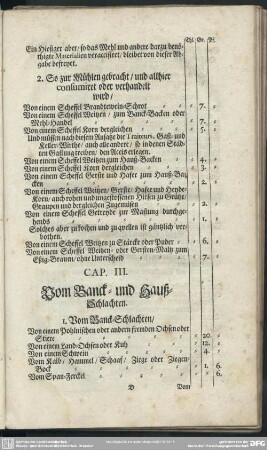 Thl. Gr. Pf.
Ein Hiesiger aber / so das Mehl und andere darzu benö-
thigte Materialien veraccisiret / bleibet von dieser Ab-
gabe befreyet.
2. So zur Mühlen gebracht / und allhier
consumiret oder verhandelt
wird /
Von einem Scheffel Brandtewein-Schrot 7.
Von einem Scheffel Weitzen / zum Banck-Backen oder
Mehl-Handel 7.
Von einem Scheffel Korn dergleichen 5.
Und müssen nach diesem Satze die Traiteurs, Gast- und
Keller-Wirthe / auch alle andere / so in denen Städ-
ten Gastung treiben / den Accis erlegen.
Von einem Scheffel Weitzen zum Hauß-Backen 4.
Von einem Scheffel Korn dergleichen 3.
Von einem Scheffel Gerste und Hafer zum Hauß-Ba-
cken 2.
Von einem Scheffel Weitzen / Gerste / Hafer und Heyde-
Korn / auch rohen und ungestossenen Hirsen zu Grütz-
Graupen und dergleichen Zugemüsen 2.
Von einem Scheffel Getreyde zur Mastung durchge-
hends 1.
Solches aber zu kochen und zu quellen ist gäntzlich ver-
bothen.
Von einem Scheffel Weitzen zu Stärcke oder Puder 6.
Von einem Scheffel Weitzen- oder Gersten-Maltz zum
Eßig-Brauen / ohne Unterscheid 7.
CAP. III.
Vom Banck- und Hauß-
Schlachten.
1. Vom Banck-Schlachten /
Von einem Pohlnischen oder andern fremden Ochsen oder
Stiere 20.
Von einem Land-Ochsen oder Kuh 12.
Von einem Schwein 4.
Vom Kalb / Hammel / Schaaf / Ziege oder Ziegen-
Bock 1. 6.
Vom Span-Ferckel 6.
D Vom